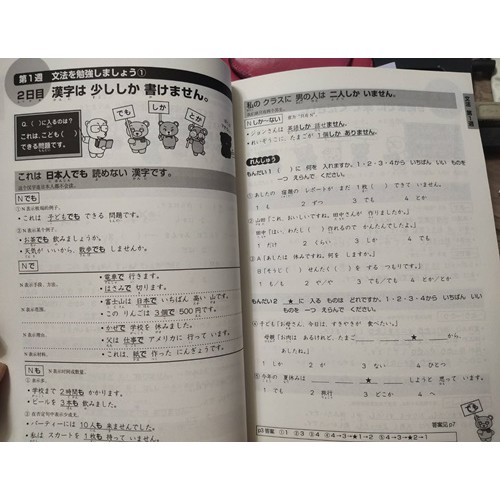 第1週 文法を勉強しましょう①
2日目 漢字は 少ししか 書けません。
Q.( )に入るのは?
これは、こども( )
できる問題です。
でも
しか
とか
これは 日本人でも 読めない 漢字です。
Nでも
① N
・これは 子どもでも できる 問題です。
② N
・お茶でも 飲みましょうか。
・天気が いいから、散歩でも しませんか。
Nで
・電車で 行きます。
・はさみで 切ります。
・富士山は 日本で いちばん 高い 山です。
・この りんごは 3個で 500円です。
・かぜで 学校を 休みました。
・父は 仕事で アメリカに 行って います。
・これは、紙で 作った にんぎょうです。
Nも
・学校まで 2時間も かかります。
・ビールを 3本も 飲みました。
・パーティーには 10人も 来ませんでした。
・私は スカートを 1枚も 持って いません。
文法 第1週
私の クラスに 男の人は 二人しか いません。
Nしか〜ない
・ジョンさんは 英語しか 話せません。
・れいぞうこに、たまごが 1個しか ありません。
れんしゅう
もんだい1 ( )に 何を 入れますか。1・2・3・4から いちばん いい ものを
一つ えらんで ください。
① あしたの 宿題の レポートが まだ 1枚( )できて いません。
1 も 2 ずつ 3 でも 4 とか
② 山田「これ、おいしいですね。田中さんが 作りましたか。」
田中「はい、わたし( )作れるので かんたんでしたよ。」
1 だけ 2 くらい 3 しか 4 でも
③ A「あしたは 休みですね。何を しますか。」
B「そうじ( )せんたく( )を する つもりです。」
1 も／も 2 でも／でも 3 や／や 4 とか／とか
もんだい2 ★ に 入る ものは どれですか。1・2・3・4から いちばん いい ものを
一つ えらんで ください。
④ 子ども「お母さん、今日は すきやきが 食べたい。」
母親「お肉は あるけれど、たまご
あしたね。」
1 しか 2 が 3 ない 4 ひとつ
⑤ 今年の 夏休みは ★ しようと 思って います。
1 でも 2 旅行 3 どこか 4 へ
でも
答案见 p7
p3答案 ①1 ②3 ③4 ④4→3→★1→2 ⑤4→3→★2→1